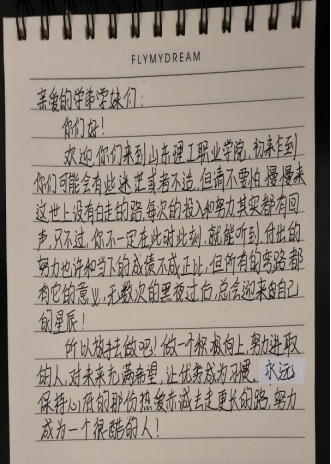 FLYMYDREAM
亲爱的学弟学妹们：
你们好！
欢迎你们来到山东理工职业学院，初来乍到
你们可能会有些迷茫或者不适，但请不要怕，慢慢来
这世上没有白走的路，每次的投入和努力，其实都有回
声，只不过，你不一定在此时此刻，就能听到，付出的
努力也许和当下的成绩不成正比，但所有的弯路都
有它的意义，无数次的黑夜过后，总会迎来自己
的星辰！
所以放手去做吧！做一个积极向上，努力进取
的人，对未来充满希望，让优秀成为习惯。永远
保持心底的那份热爱赤诚去走更长的路，努力
成为一个很酷的人！